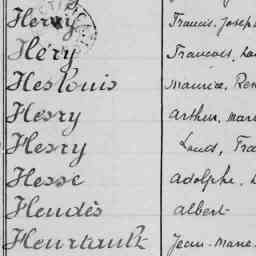 Henry Francis, Joseph
Héry Francois,
Heslouis Maurice, René
Hesry Arthur, Marie
Hesry Louis, Fra
Hesse Adolphe,
Heudès Albert
Heurtault Jean-Marie